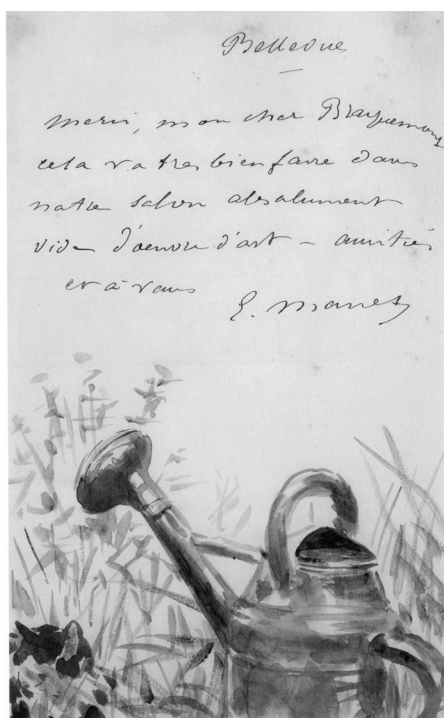 Bellevue
Merci, mon cher Bracquemond
cela va tres bien faire dans
notre salon absolument
vide d'oeuvre d'art – amitiés
et à vous
E. Manet